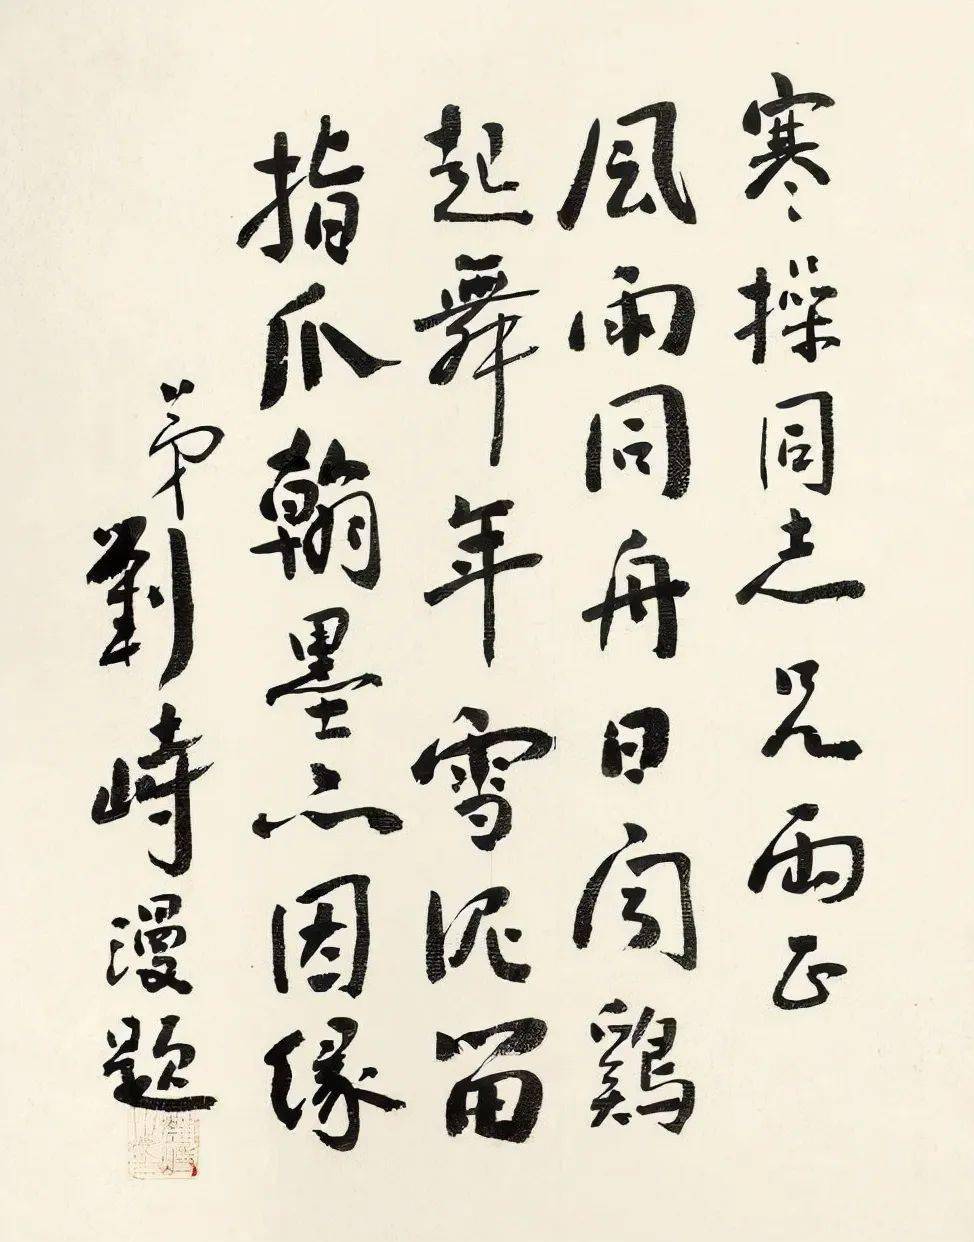 寒操同志兄兩正
風雨同舟日聞鷄
起舞年雪泥留
指爪翰墨亦因緣
弟劉峙漫題